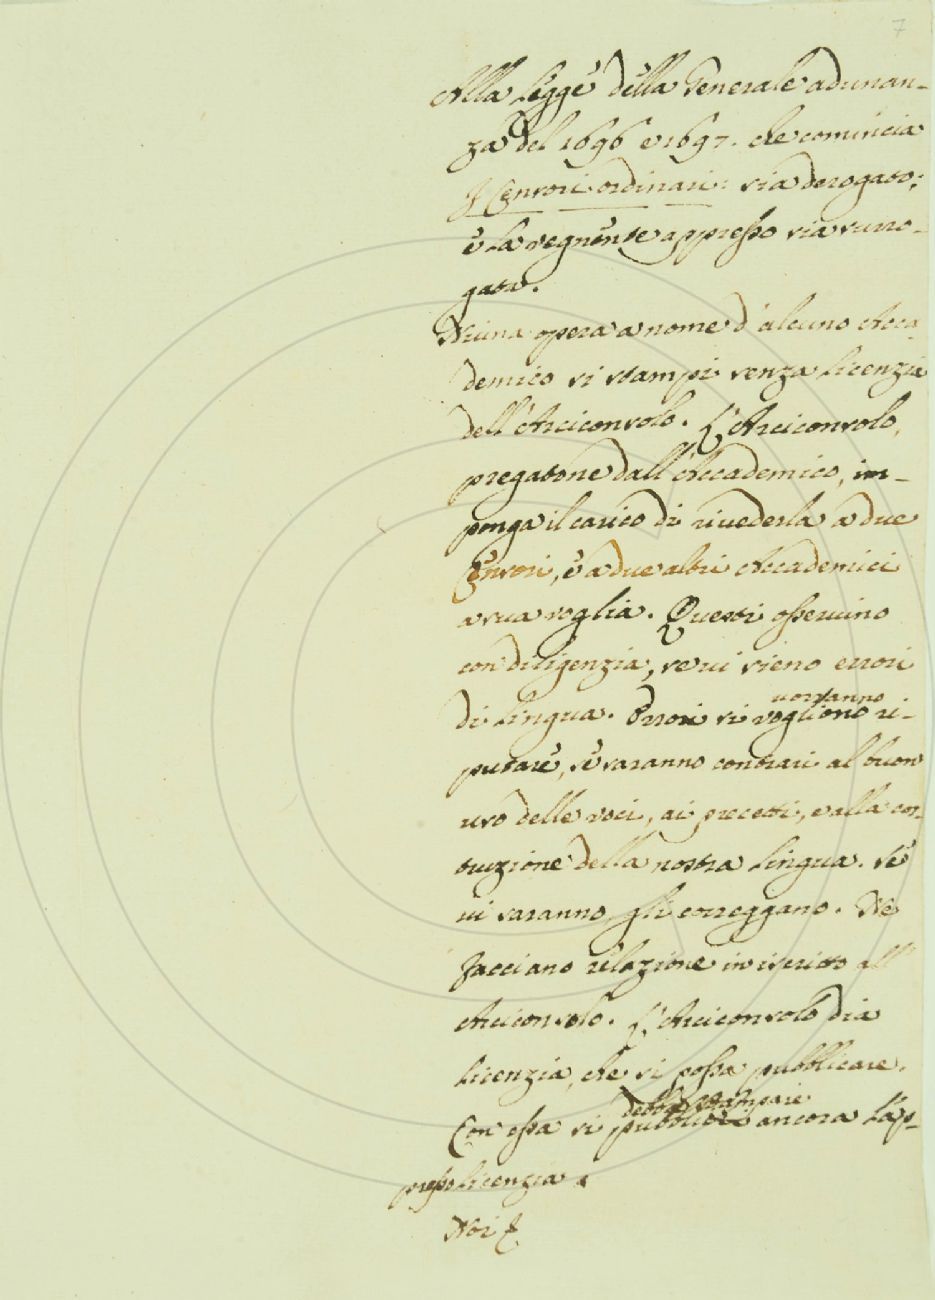 7
Alla Legge della Generale adunan-
za del 1696 e 1697. che comincia
I Censori ordinari: sia derogato;
e la seguente appresso sia surro-
gata.
Niuna opera a nome d'alcuno Acca-
demico si stampi senza licenzia
dell'Arciconsolo. L'Arciconsolo,
pregatone dall'Accademico, im-
ponga il carico di rivederla a due
Censori, e a due altri Accademici
a sua voglia. Questi osservino
con diligenzia, se vi sieno errori
di lingua. Errori si vogliono vorranno ri-
putare, se saranno contrari al buon
uso delle voci, ai precetti, e alla cos-
truzione della nostra lingua. Se
vi saranno, gli correggano. Ne
facciano relazione in iscritto all'
Arciconsolo. L'Arciconsolo dia
licenzia, che si possa pubblicare.
Con essa si debba stampare ancora l'ap-
presso licenzia.
Noi